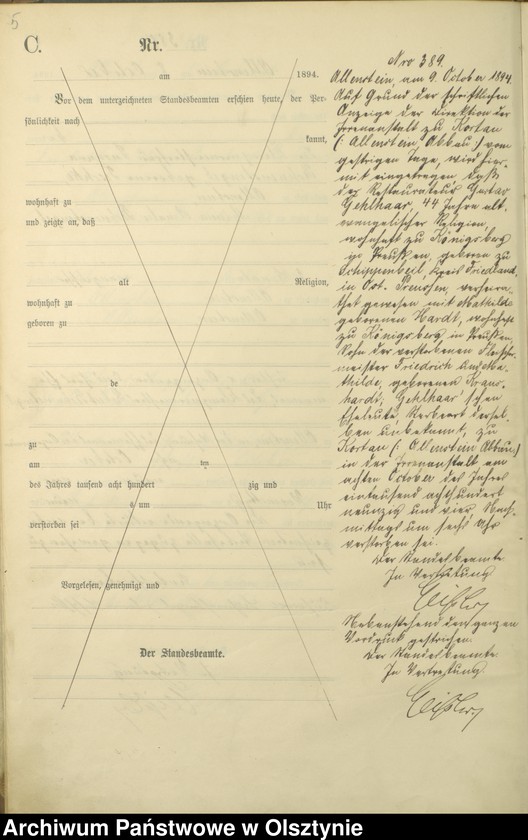 5
C.
Nr.
am
1894.
Vor dem unterzeichneten Standesbeamten erschien heute, der Per-
sönlichkeit nach
kannt,
wohnhaft zu
und zeigte an, daß
alt
Religion,
wohnhaft zu
geboren zu
de
zu
am
ten
des Jahres tausend acht hundert
zig und
s um
Uhr
verstorben sei
Vorgelesen, genehmigt und
Der Standesbeamte.
Nro 389.
Allenstein, am 9. October 1894
Auf Grund der schriftlichen
Anzeige der Direktion der
Irrenanstalt zu Kortau
(: Allenstein Abbau :) vom
gestrigen Tage, wird hier-
mit eingetragen, daß
der Restaurateur Gustav
Gehlhaar, 44 Jahre alt,
evangelischer Religion,
wohnhaft zu Königsberg
in Preußen, geboren zu
Schippenbeil, Kreis Friedland
in Ost. Preussen, verheira-
thet gewesen mit Mathilde
geborenen Hardt, wohnhaft
zu Königsberg in Preußen,
Sohn der verstorbenen Fleischer-
meister Friedrich und Ma-
thilde, geborenen
Gehlhaar'schen
Eheleute, dersel-
ben unbekannt, zu
Kortau (: Allenstein Abbau :)
in der Irrenanstalt am
achten October des Jahres
eintausend achthundert
neunzig und vier, Nach-
mittags um sechs Uhr
verstorben sei.
Der Standesbeamte
In Vertretung
Nebenstehend den ganzen
Vordruck gestrichen.
Der Standesbeamte.
In Vertretung
Archiwum Państwowe w Olsztynie